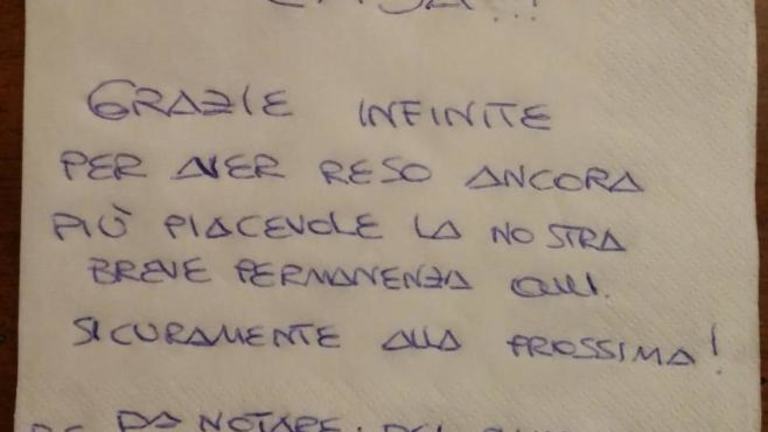 GRAZIE INFINITE
PER AVER RESO ANCORA
PIÙ PIACEVOLE LA NOSTRA
BREVE PERMANENZA QUI.
SICURAMENTE ALLA PROSSIMA!
DA NOTARE